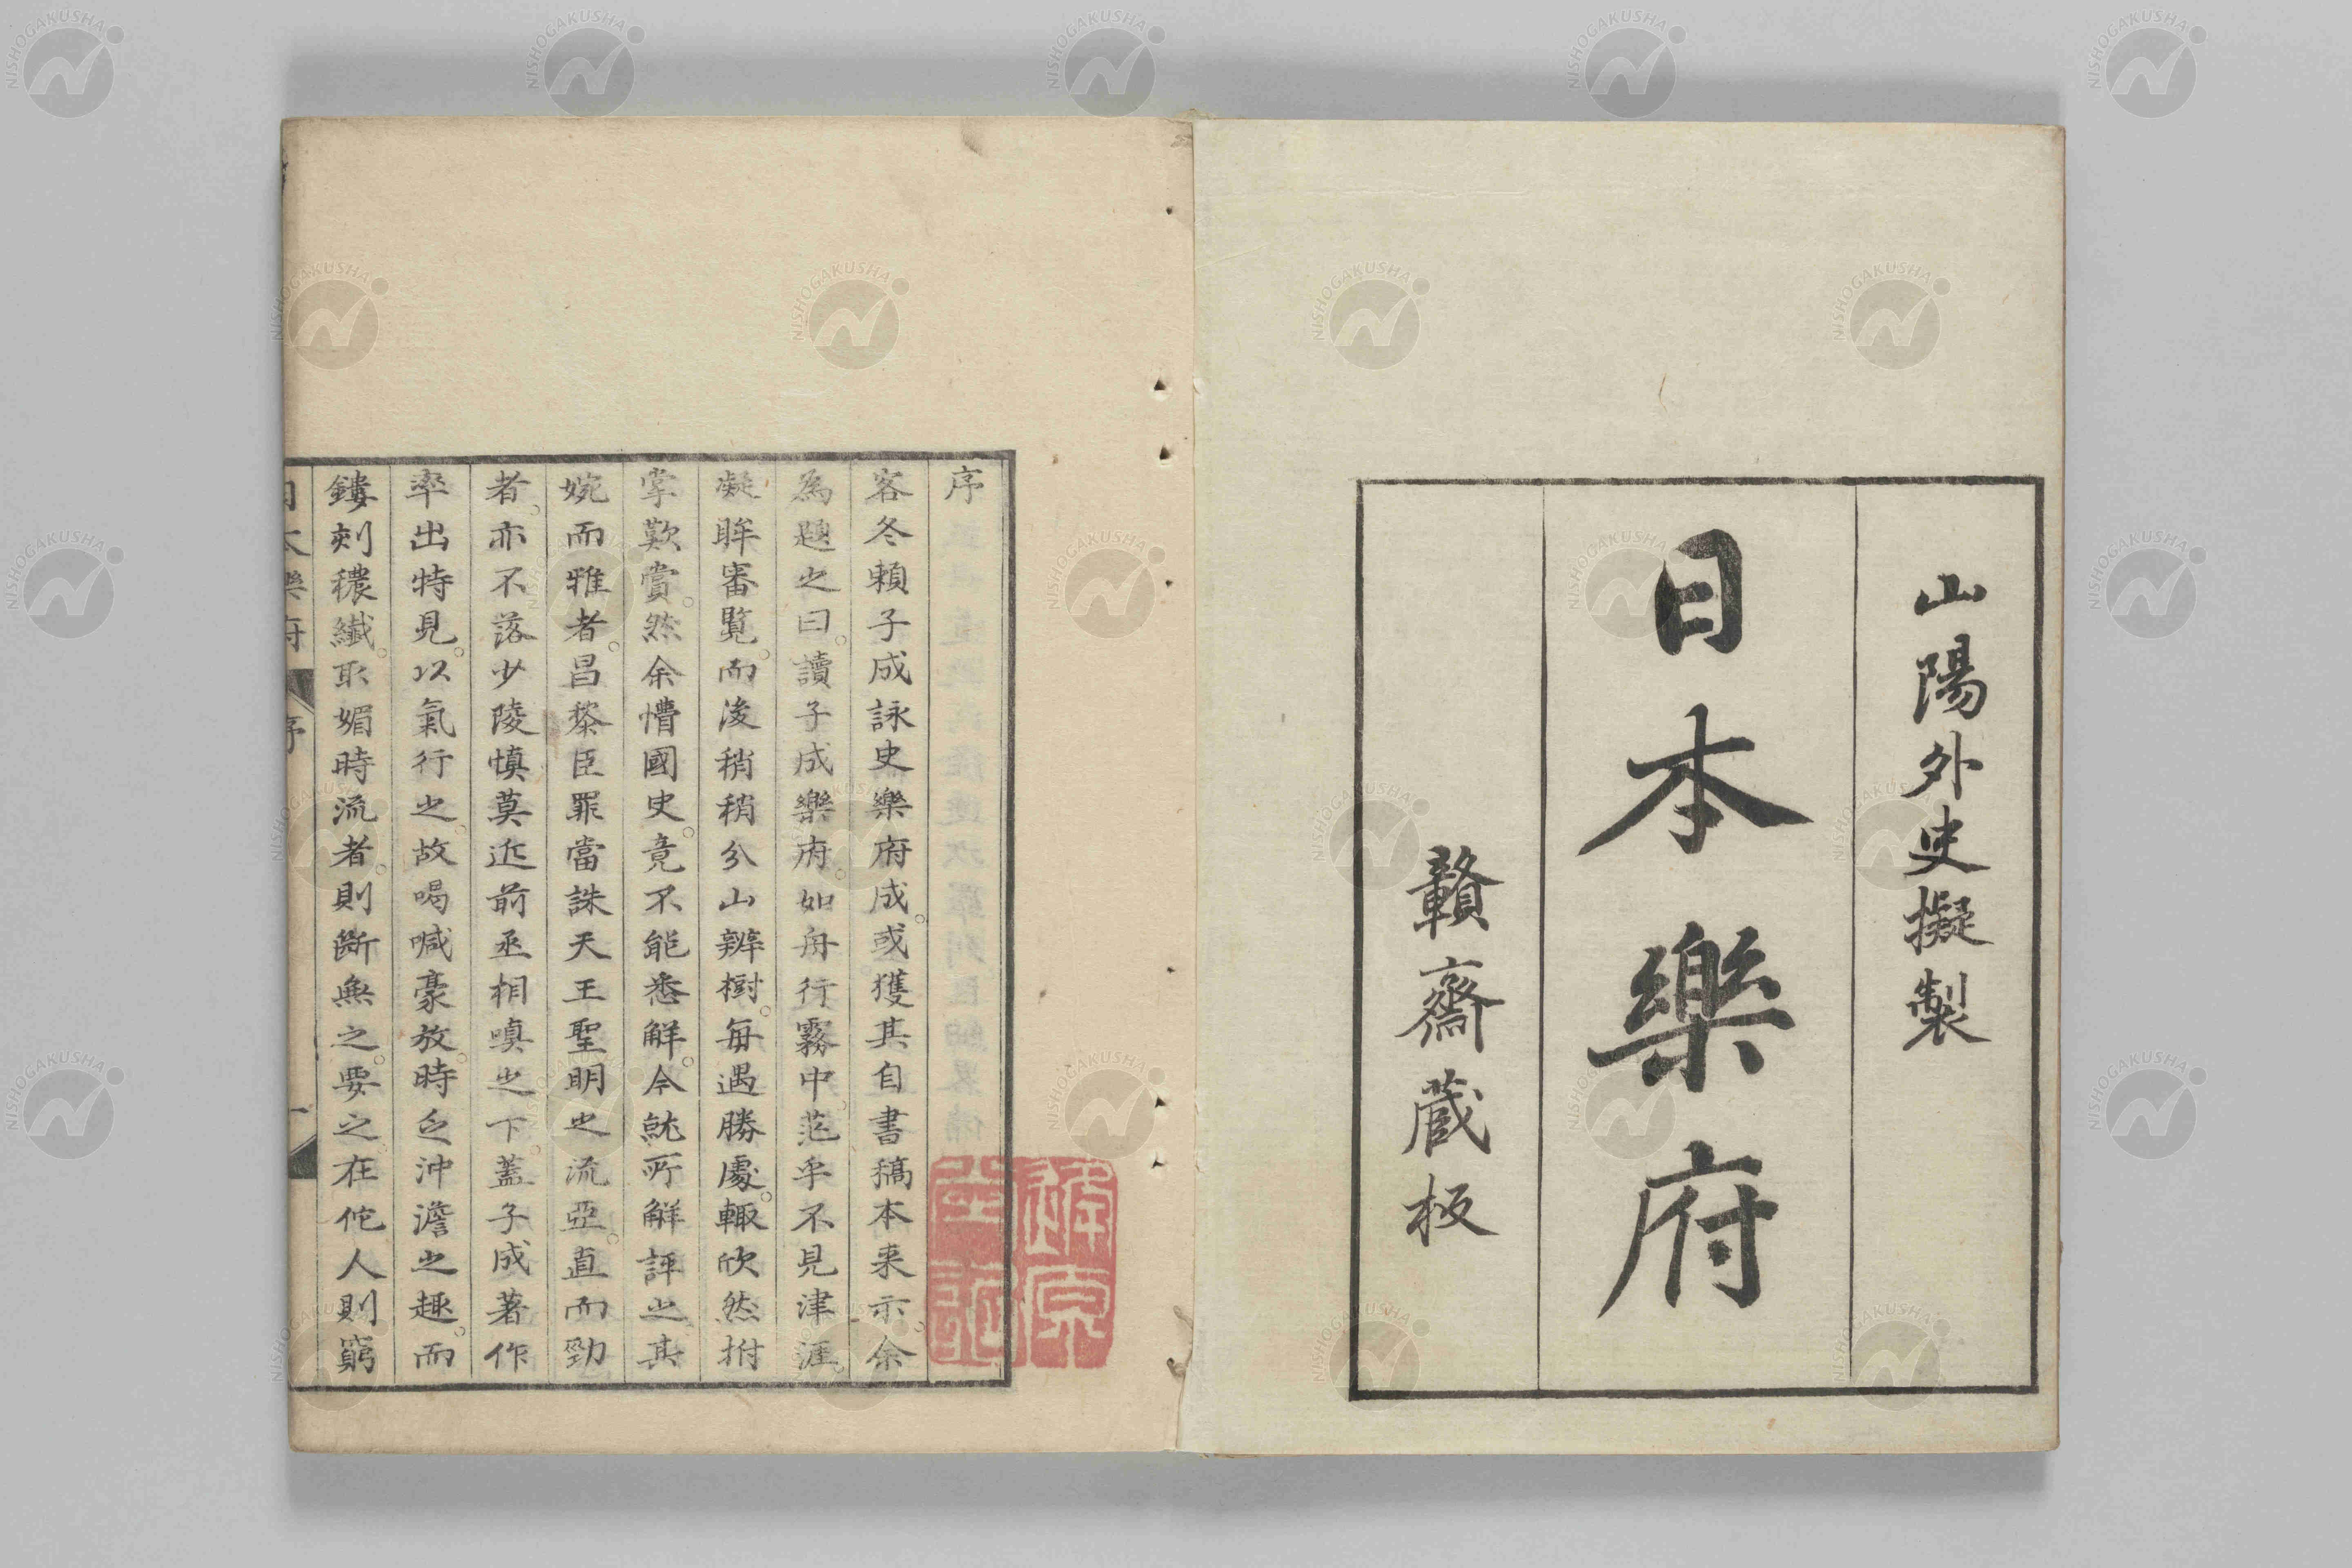 山陽外史擬製
日本樂府
贛齋蔵板
序
客冬賴子成詠史樂府成。或獲其自書稿本来示。余
為題之曰。讀子成樂府。如舟行霧中。茫乎不見津涯。
凝眸審覧。而後稍稍分山辨樹。每遇勝處。輙欣然拊
掌歎賞。然余懵國史。竟不能悉解。今就所解評之。其
婉而雅者。昌黎臣罪當誅天王聖明之流亞。直而勁
者。亦不落少陵慎莫近前丞相嗔之下。蓋子成著作
率出特見。以氣行之。故喝喊豪放。時乏沖澹之趣。而
鏤刻穠纖。取媚時流者。則斷無之。要之。在佗人則窮
日本樂府
序
一
NISHOGAKUSHA